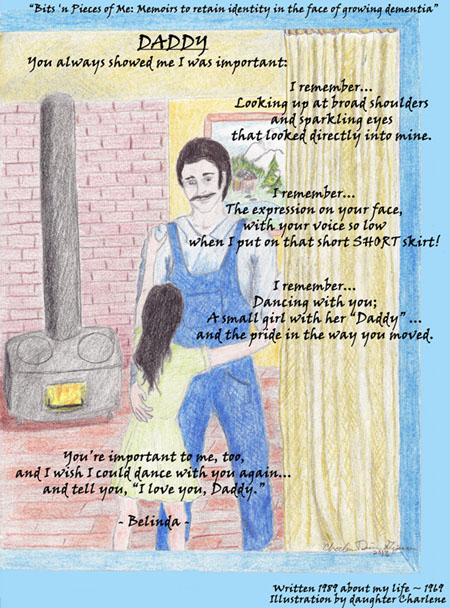 "Bits 'n Pieces of Me: Memoirs to retain identity in the face of growing dementia"
DADDY
You always showed me I was important:
I remember...
Looking up at broad shoulders
and sparkling eyes
that looked directly into mine.
I remember...
The expression on your face,
with your voice so low
when I put on that short SHORT skirt!
I remember...
Dancing with you;
A small girl with her "Daddy" ...
and the pride in the way you moved.
You're important to me, too,
and I wish I could dance with you again...
and tell you, "I love you, Daddy."
- Belinda -
Written 1989 about my life ~ 1969
Illustration by daughter Charlene